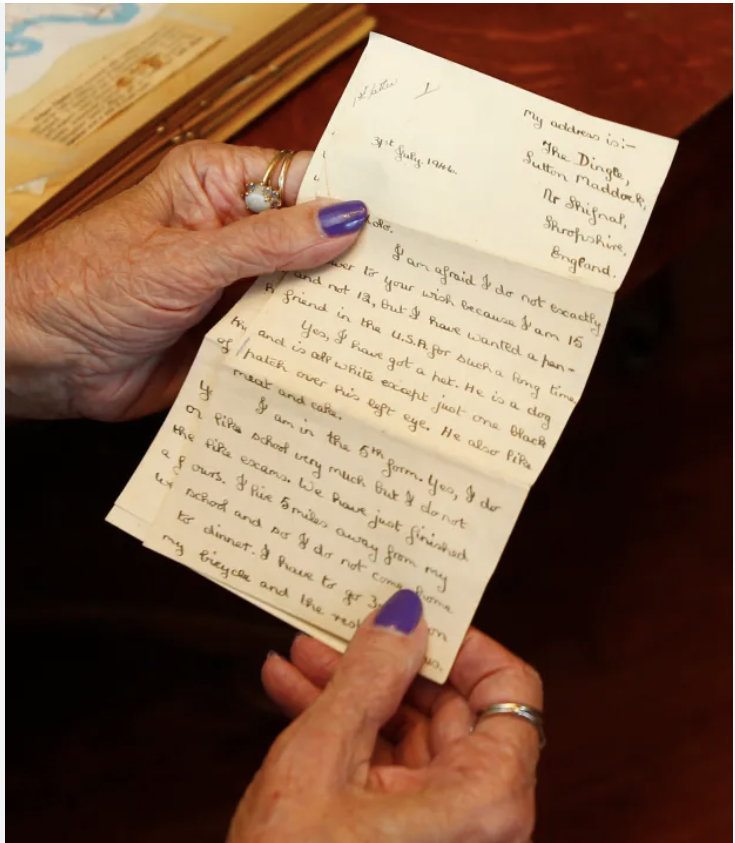 1st letter 1
My address is:-
31st July 1946.
The Dingle,
Sutton Maddock,
Nr Shifnal,
Shropshire,
England.
I am afraid I do not exactly
to your wish because I am 15
and not 12, but I have wanted a pen-
friend in the U.S.A. for such a long time
Yes, I have got a pet. He is a dog
and is all white except just one black
patch over his left eye. He also like
meat and cake.
I am in the 5th form. Yes, I do
like school very much but I do not
like exams. We have just finished
ours. I live 5 miles away from my
school and so I do not come home
to dinner. I have to go 3 on
my bicycle and the rest